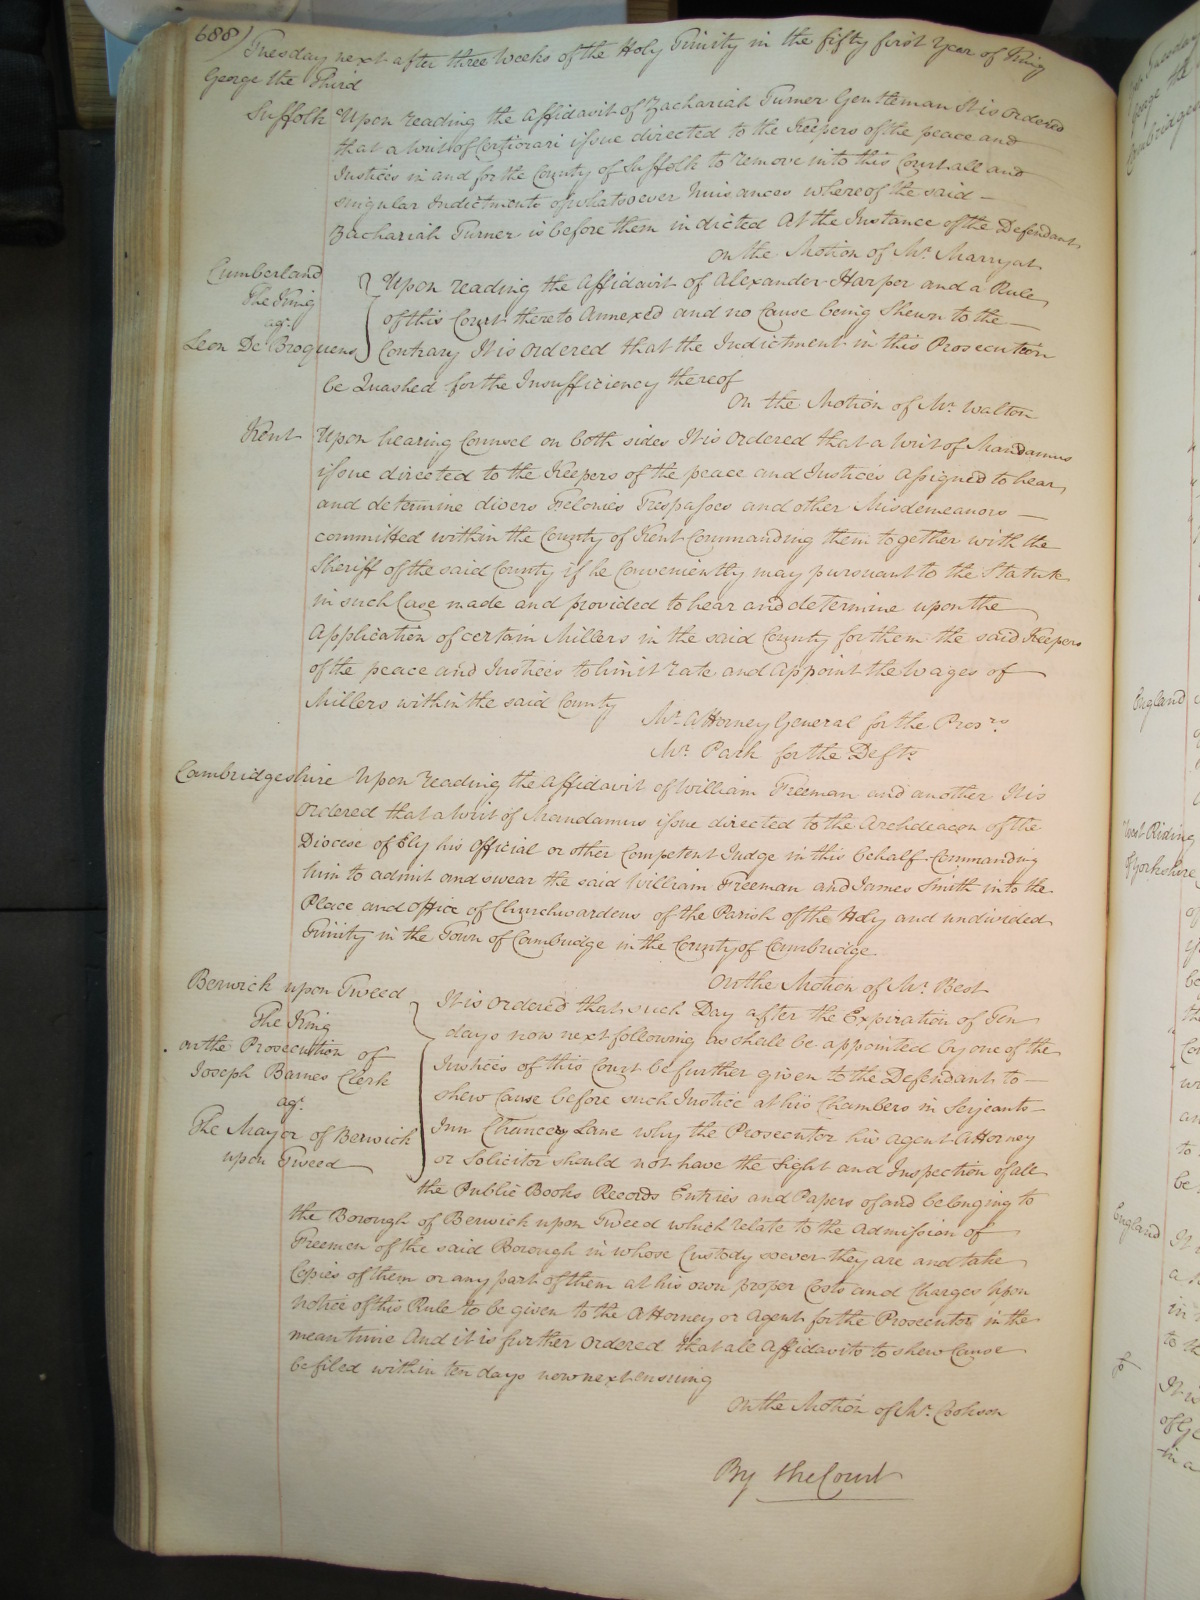 688)
Tuesday next after three Weeks of the Holy Trinity in the fifty first Year of King
George the Third
Suffolk Upon reading the Affidavit of Zachariah Turner Gentleman It is Ordered
that a Writ of Certiorari issue directed to the Keepers of the peace and
Justices in and for the County of Suffolk to remove into this Court all and
singular Indictments of whatsoever Nuisances whereof the said
Zachariah Turner is before them indicted At the Instance of the Defendant
On the Motion of Mr. Marryat
Cumberland
The King
agt.
Leon De Broquens
Upon reading the Affidavit of Alexander Harper and a Rule
of this Court thereto Annexed and no Cause being Shewn to the
Contrary It is Ordered that the Indictment in this Prosecution
be Quashed for the Insufficiency thereof
On the Motion of Mr. Walton
Kent Upon hearing Counsel on both sides It is Ordered that a Writ of Mandamus
issue directed to the Keepers of the peace and Justices Assigned to hear
and determine divers Felonies Trespasses and other Misdemeanors
committed within the County of Kent Commanding them together with the
Sheriff of the said County if he Conveniently may pursuant to the Statute
in such Case made and provided to hear and determine upon the
Application of certain Millers in the said County for them the said Keepers
of the peace and Justices to limit rate and Appoint the Wages of
Millers within the said County
Mr. Attorney General for the Prosrs.
Mr. Park for the Defts.
Cambridgeshire Upon reading the Affidavit of William Freeman and another It is
Ordered that a Writ of Mandamus issue directed to the Archdeacon of the
Diocese of Ely his Official or other Competent Judge in this behalf Commanding
him to admit and swear the said William Freeman and James Smith into the
Place and Office of Churchwardens of the Parish of the Holy and undivided
Trinity in the Town of Cambridge in the County of Cambridge
On the Motion of Mr. Best
Berwick upon Tweed
The King
on the Prosecution of
Joseph Barnes Clerk
agt.
The Mayor of Berwick
upon Tweed
It is Ordered that such Day after the Expiration of Ten
days now next following as shall be appointed by one of the
Justices of this Court be further given to the Defendant to
shew Cause before such Justice at his Chambers in Serjeants
Inn Chancery Lane why the Prosecutor his Agent Attorney
or Solicitor should not have the Sight and Inspection of all
the Public Books Records Entries and Papers of and belonging to
the Borough of Berwick upon Tweed which relate to the Admission of
Freemen of the said Borough in whose Custody soever they are and take
Copies of them or any part of them at his own proper Costs and Charges Upon
Notice of this Rule to be given to the Attorney or Agent for the Prosecutor in the
mean time And it is further Ordered that all Affidavits to shew Cause
be filed within ten days now next ensuing
On the Motion of Mr. Cookson
By the Court
England
West Riding
of Yorkshire
England